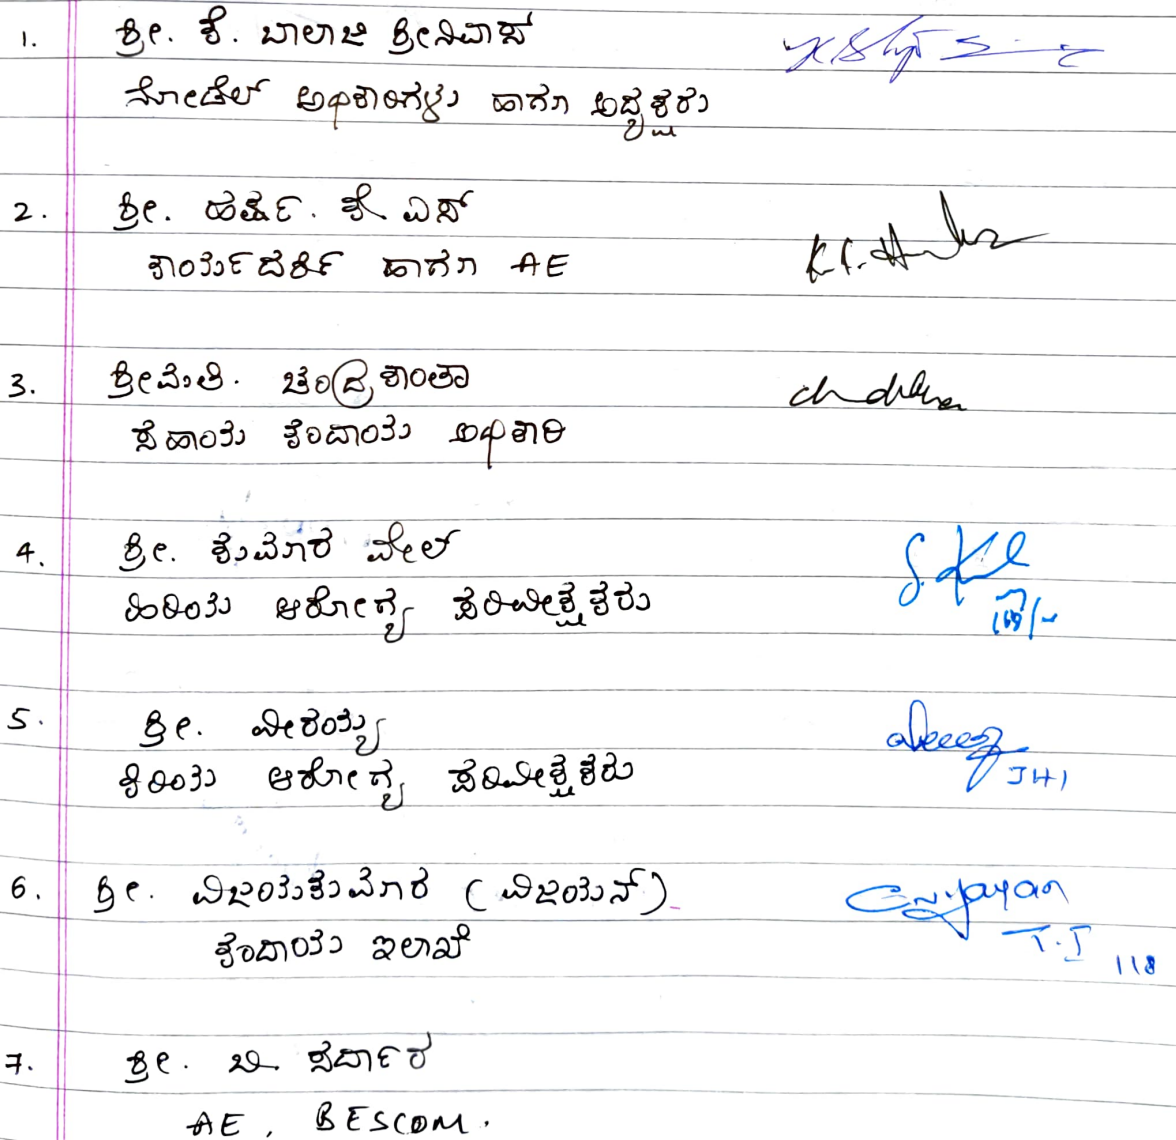 1. ಶ್ರೀ. ಕೆ. ಬಾಲಾಜಿ ಶ್ರೀನಿವಾಸ್
ನೋಡೆಲ್ ಅಧಿಕಾರಿಗಳು ಹಾಗೂ ಅಧ್ಯಕ್ಷರು
2. ಶ್ರೀ. ಹರ್ಷ. ಕೆ. ಎಸ್
ಕಾರ್ಯದರ್ಶಿ ಹಾಗೂ AE
K.S. Harsha
3. ಶ್ರೀಮತಿ. ಚಂದ್ರಕಾಂತಾ
ಸಹಾಯ ಕಂದಾಯ ಅಧಿಕಾರಿ
4. ಶ್ರೀ. ಕುಮಾರ ವೇಲ್
ಹಿರಿಯ ಆರೋಗ್ಯ ಪರಿವೀಕ್ಷಕರು
5. ಶ್ರೀ. ವೀರಯ್ಯ
ಕಿರಿಯ ಆರೋಗ್ಯ ಪರಿವೀಕ್ಷಕರು
JHI
6. ಶ್ರೀ. ವಿಜಯಕುಮಾರ (ವಿಜಯನ್)
ಕಂದಾಯ ಇಲಾಖೆ
T.I 118
7. ಶ್ರೀ. ಬಿ. ಸರ್ದಾರ
AE, BESCOM.